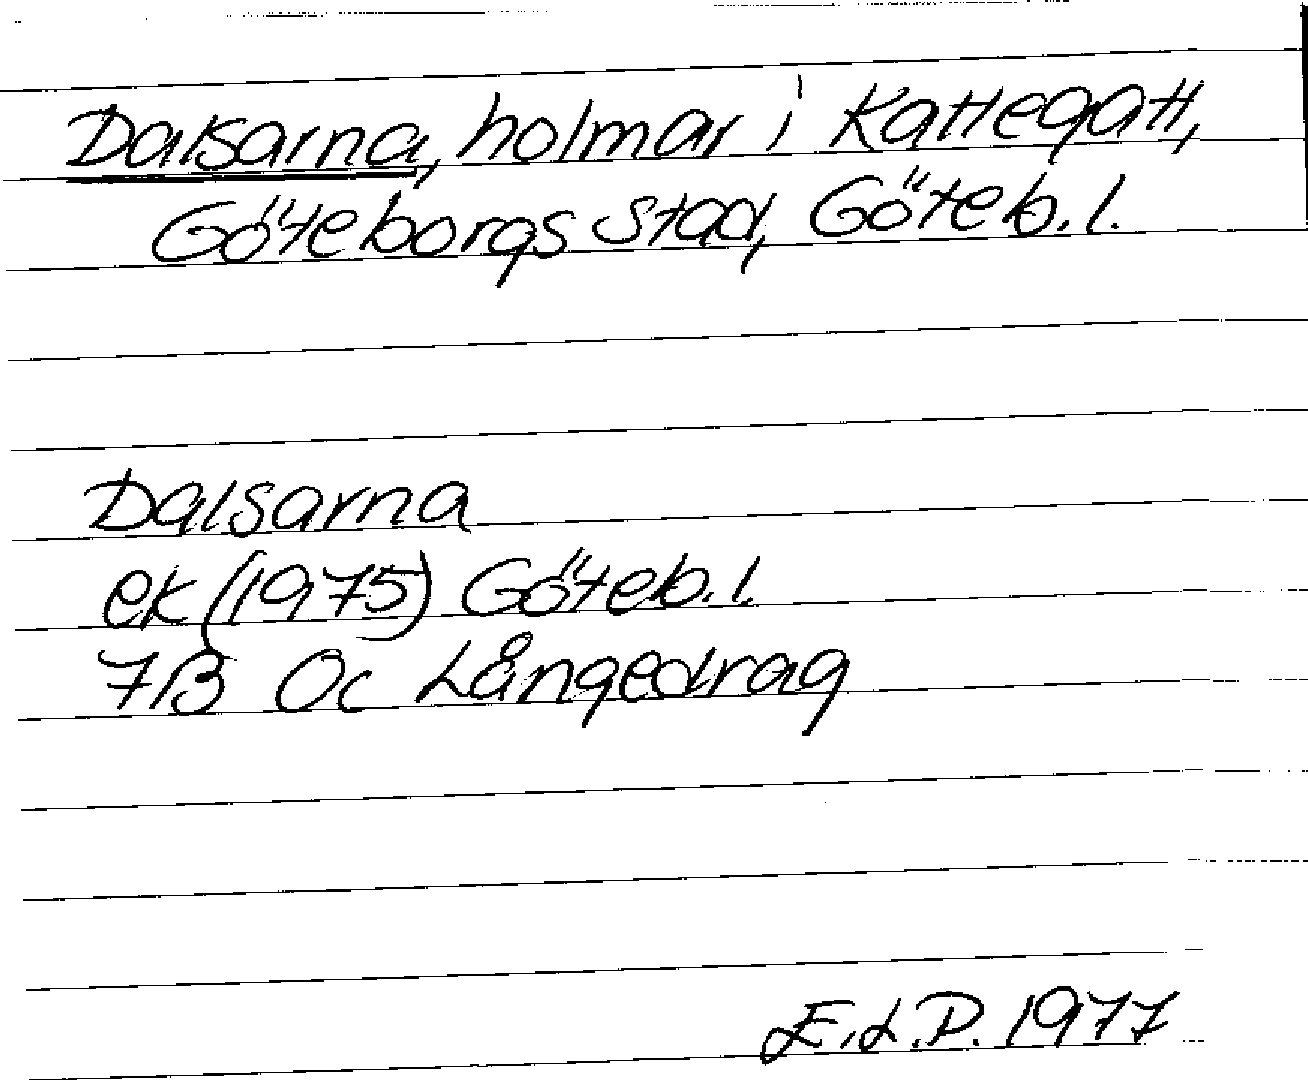 Dalsarna, holmar i Kattegatt,
Göteborgs stad, Göteb. l.
Dalsarna
ek (1975) Göteb. l.
7B 0c Långedrag
E.L.P. 1977